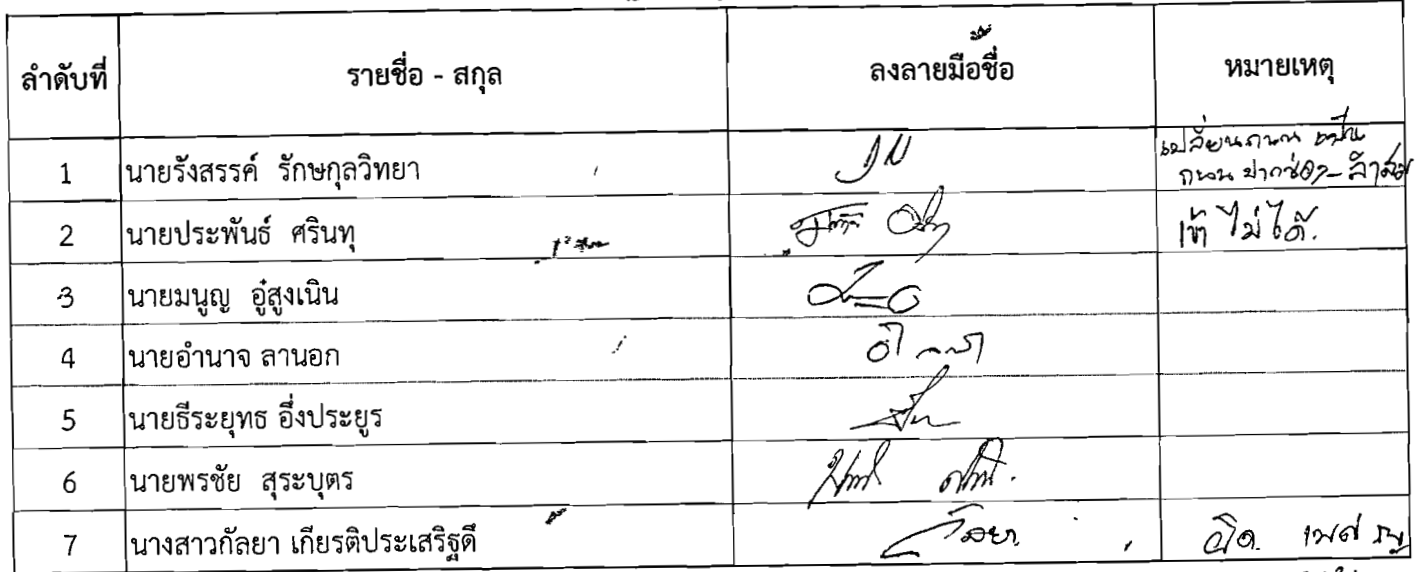 ลำดับที่ รายชื่อ - สกุล ลงลายมือชื่อ หมายเหตุ
1 นายรังสรรค์ รักษกุลวิทยา เปลี่ยนถนน เป็น
ถนน ปากช่อง-ลำสม
2 นายประพันธ์ ศรินทุ เข้าไม่ได้.
3 นายมนูญ อู๋สูงเนิน
4 นายอำนาจ ลานอก
5 นายธีระยุทธ อึ่งประยูร
6 นายพรชัย สุระบุตร
7 นางสาวกัลยา เกียรติประเสริฐดี